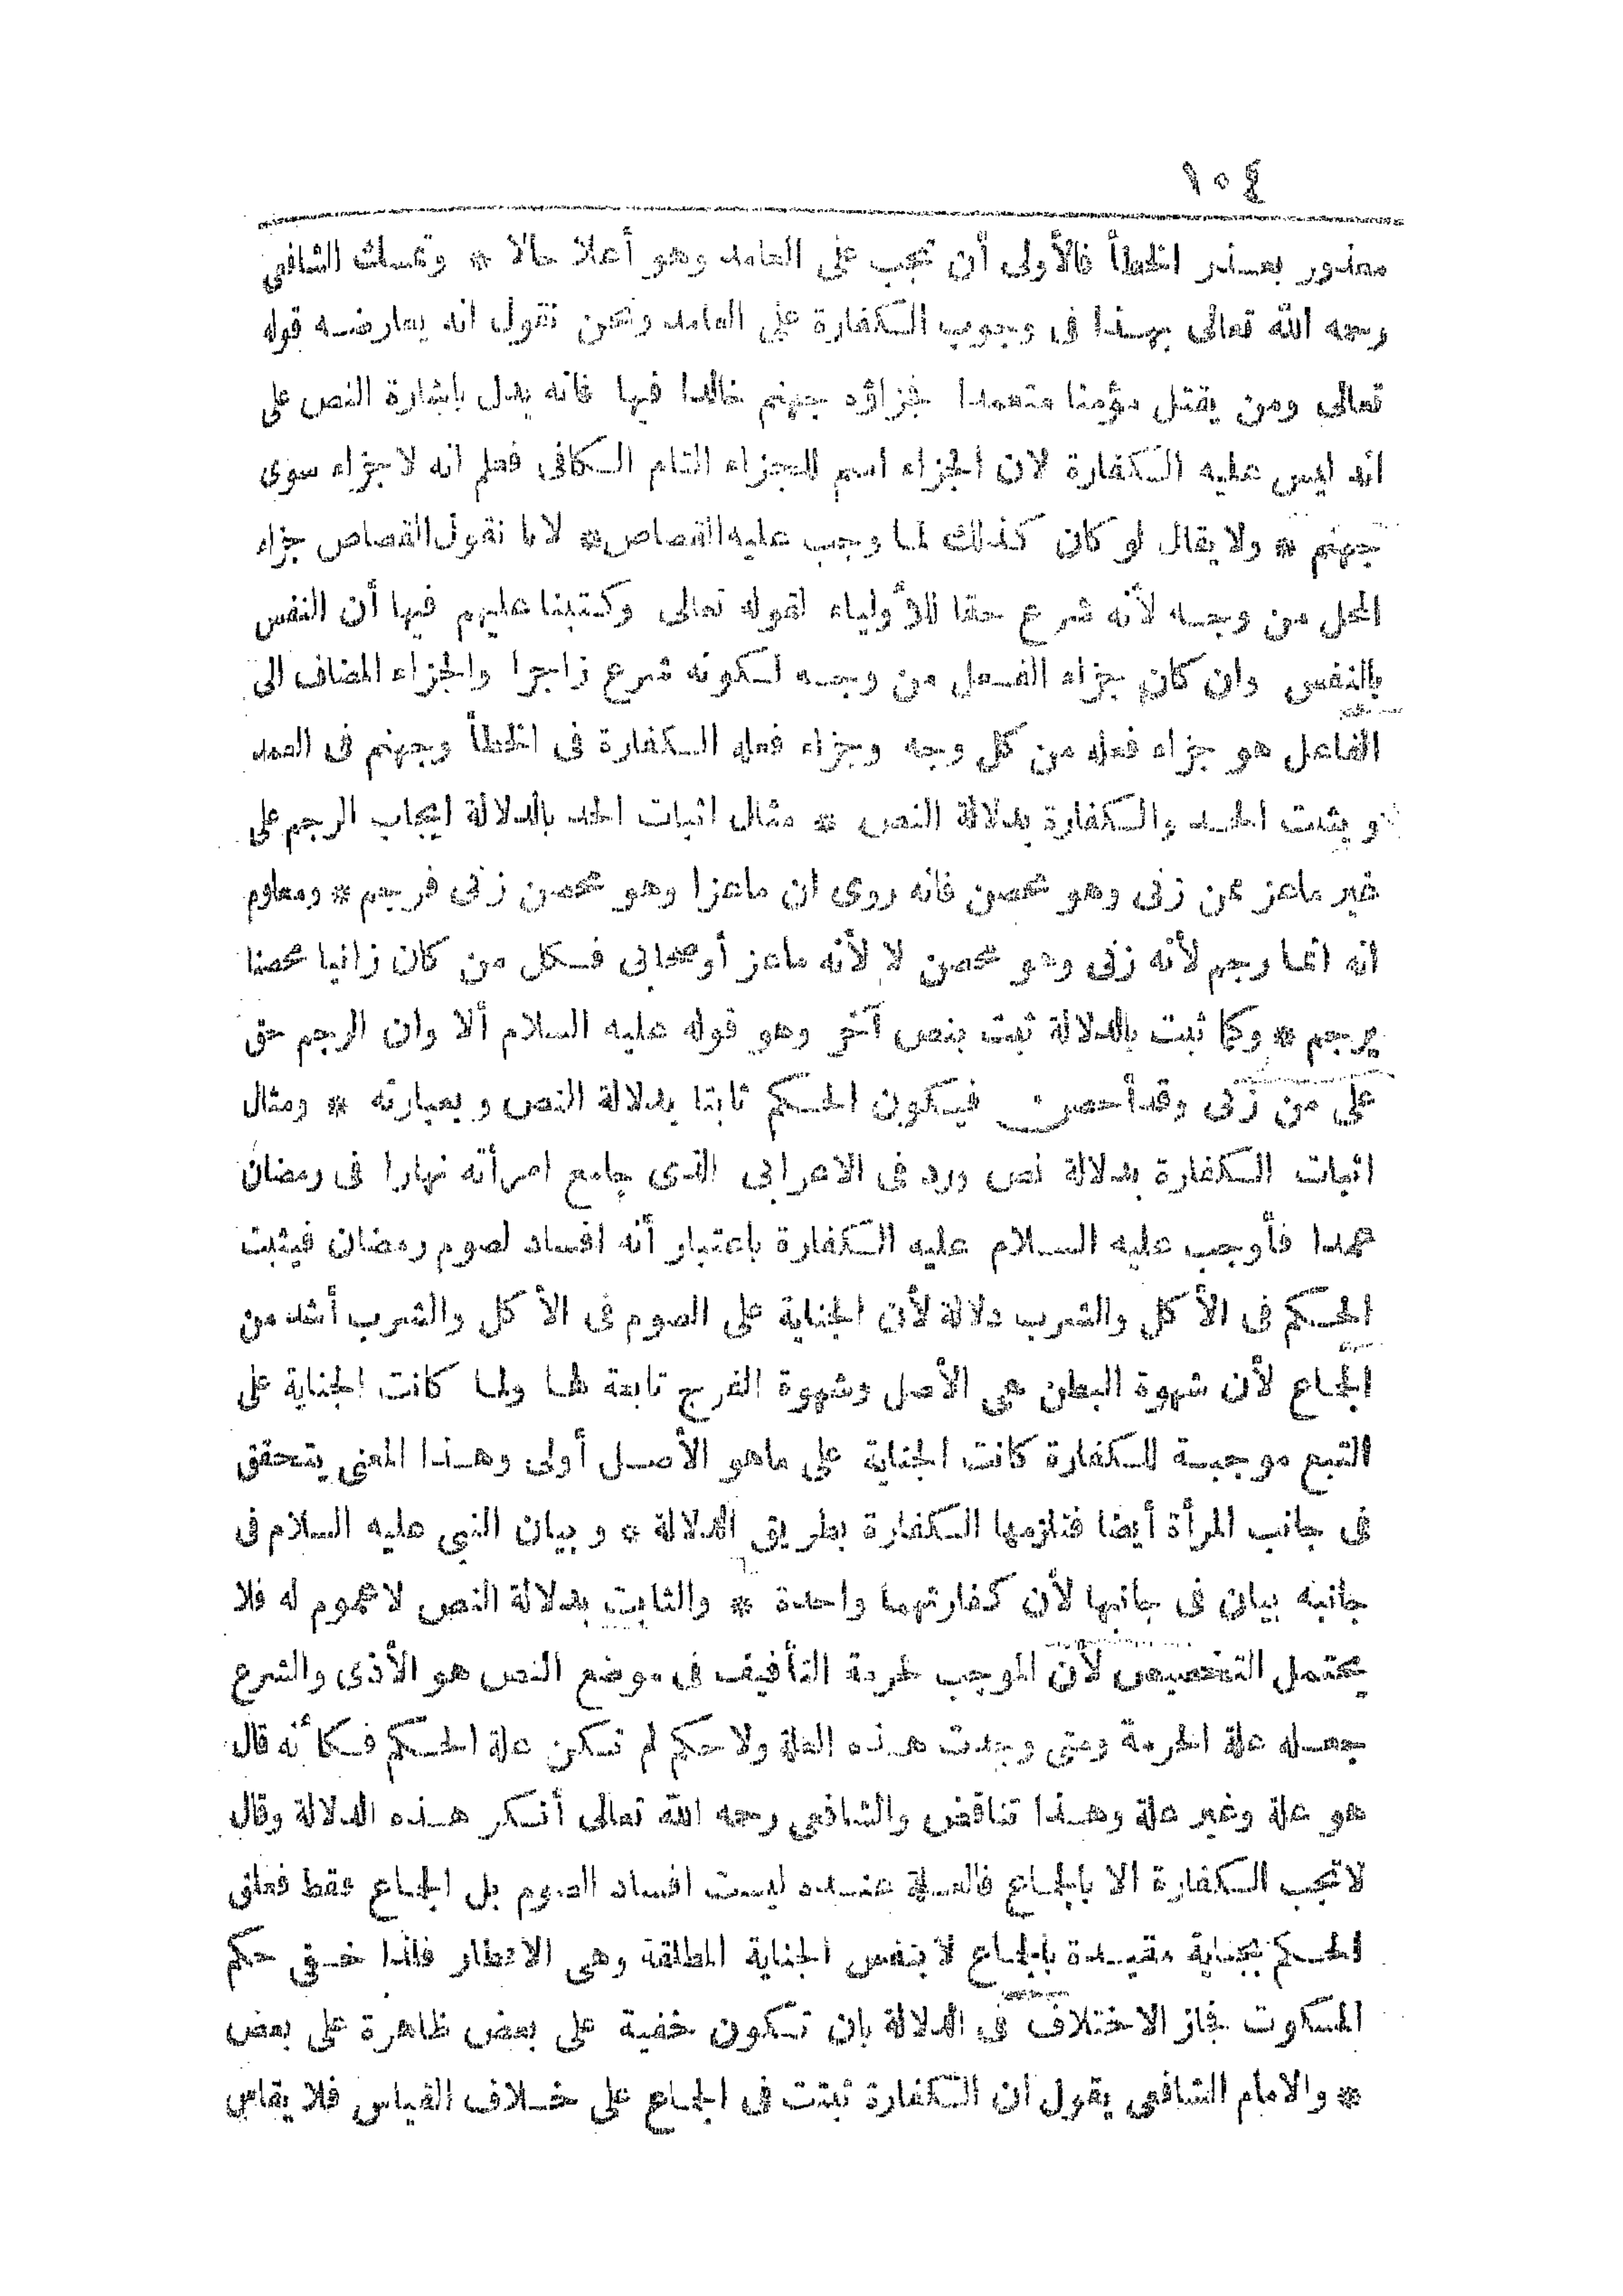 ١٠٤
معذور بعذر الخطأ فالأولى أن تجب على العامد وهو أعلا حالا * وتمسك الشافعى
رحمه الله تعالى بهذا فى وجوب الكفارة على العامد ونحن نقول انه يعارضه قوله
تعالى ومن يقتل مؤمنا متعمدا فجزاؤه جهنم خالدا فيها فانه يدل بإشارة النص على
انه ليس عليه الكفارة لان الجزاء اسم للجزاء التام الكافى فعلم انه لا جزاء سوى
جهنم * ولا يقال لو كان كذلك لما وجب عليه القصاص * لانا نقول القصاص جزاء
المحل من وجه لأنه شرع حقا للأولياء لقوله تعالى وكتبنا عليهم فيها أن النفس
بالنفس وان كان جزاء الفعل من وجه لكونه شرع زاجرا والجزاء المضاف الى
الفاعل هو جزاء فعله من كل وجه وجزاء فعله الكفارة فى الخطأ وجهنم فى العمد
ويثبت الحد والكفارة بدلالة النص * مثال اثبات الحد بالدلالة ايجاب الرجم على
غير ماعز ممن زنى وهو محصن فانه روى ان ماعزا وهو محصن زنى فرجم * ومعلوم
انه انما رجم لأنه زنى وهو محصن لا لأنه ماعز أو صحابى فكل من كان زانيا محصنا
يرجم * وكما ثبت بالدلالة ثبت بنص آخر وهو قوله عليه السلام ألا وان الرجم حق
على من زنى وقد أحصن فيكون الحكم ثابتا بدلالة النص وبعبارته * ومثال
اثبات الكفارة بدلالة نص ورد فى الاعرابى الذى جامع امرأته نهارا فى رمضان
عمدا فأوجب عليه السلام عليه الكفارة باعتبار أنه افساد لصوم رمضان فيثبت
الحكم فى الأكل والشرب دلالة لأن الجناية على الصوم فى الأكل والشرب أشد من
الجماع لأن شهوة البطن هى الأصل وشهوة الفرج تابعة لها ولما كانت الجناية على
التبع موجبة للكفارة كانت الجناية على ماهو الأصل أولى وهذا المعنى يتحقق
فى جانب المرأة أيضا فتلزمها الكفارة بطريق الدلالة * وبيان النبى عليه السلام فى
جانبه بيان فى جانبها لأن كفارتهما واحدة * والثابت بدلالة النص لا عموم له فلا
يحتمل التخصيص لأن الموجب لحرمة التأفيف فى موضع النص هو الأذى والشرع
جعله علة الحرمة ومتى وجدت هذه العلة ولا حكم لم تكن علة الحكم فكأنه قال
هو علة وغير علة وهذا تناقض والشافعى رحمه الله تعالى أنكر هذه الدلالة وقال
لا تجب الكفارة الا بالجماع فالعلة عنده ليست افساد الصوم بل الجماع فقط فعلق
الحكم بجناية مقيدة بالجماع لا بنفس الجناية المطلقة وهى الافطار فلذا خفى حكم
المسكوت فجاز الاختلاف فى الدلالة بان تكون خفية على بعض ظاهرة على بعض
* والامام الشافعى يقول ان الكفارة ثبتت فى الجماع على خلاف القياس فلا يقاس